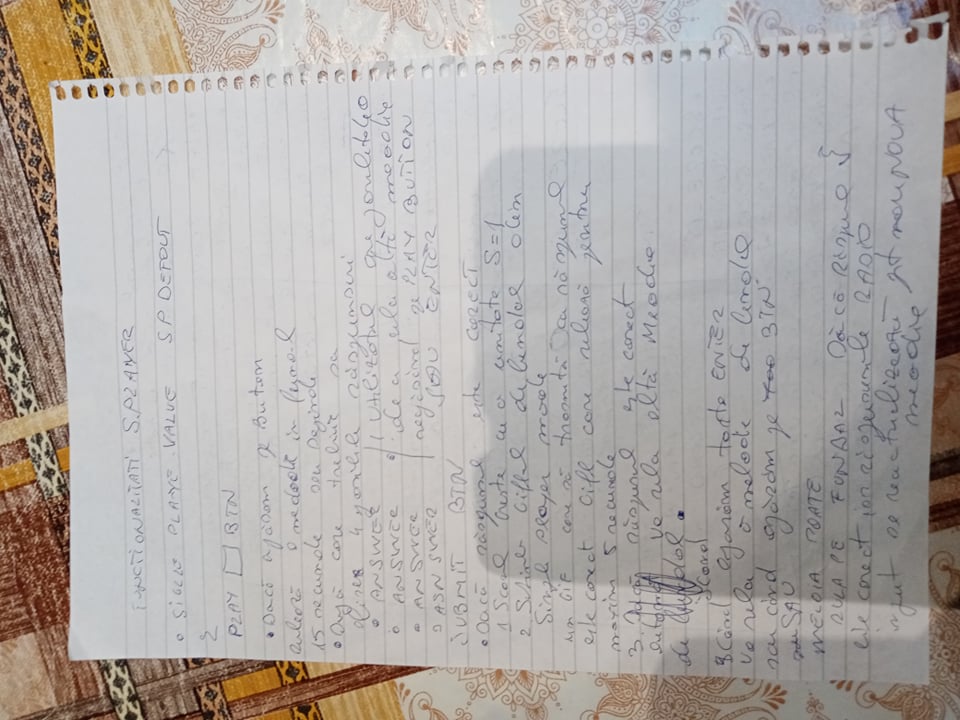 FUNCTIONALITATI S.PLAYER
• SIGLLE PLAYE VALUE SP DEFOUT
{
PLAY BTN
• Dacă apăsăm pe Buton
rulează o melodie în fundal
15 secunde
• După care trebuie sa
4 posibile răspunsuri
• ANSWER
• ANSWER
• ANSWER
• ASNSWER
1 Utilizatorul are posibilitatea
de a rula altă meodie
regăsind pe PLAY BUTTON
SAU ENTER
SUBMIT BTN
• Dacă răspunsul este corect
1 Scorul creste cu o unitate S=1
2. Giful de fundal din
Simple Player mode
un GIF care să trasmită ca răspunsul
este corect Gifl care rulează pentru
maxim 5 secunde
3. După răspunsul este corect
automat va rula altă Meodie
de
Când apăsăm taste ENTER
va rula o melodie de fundal
sau când apăsăm pe BTN
SAU
MELOIA POATE
RULA PE FUNDAL Dacă Răspusul {
este corect iar răspunsurile RADIO
input se reactualizează pt NOUA
meodie